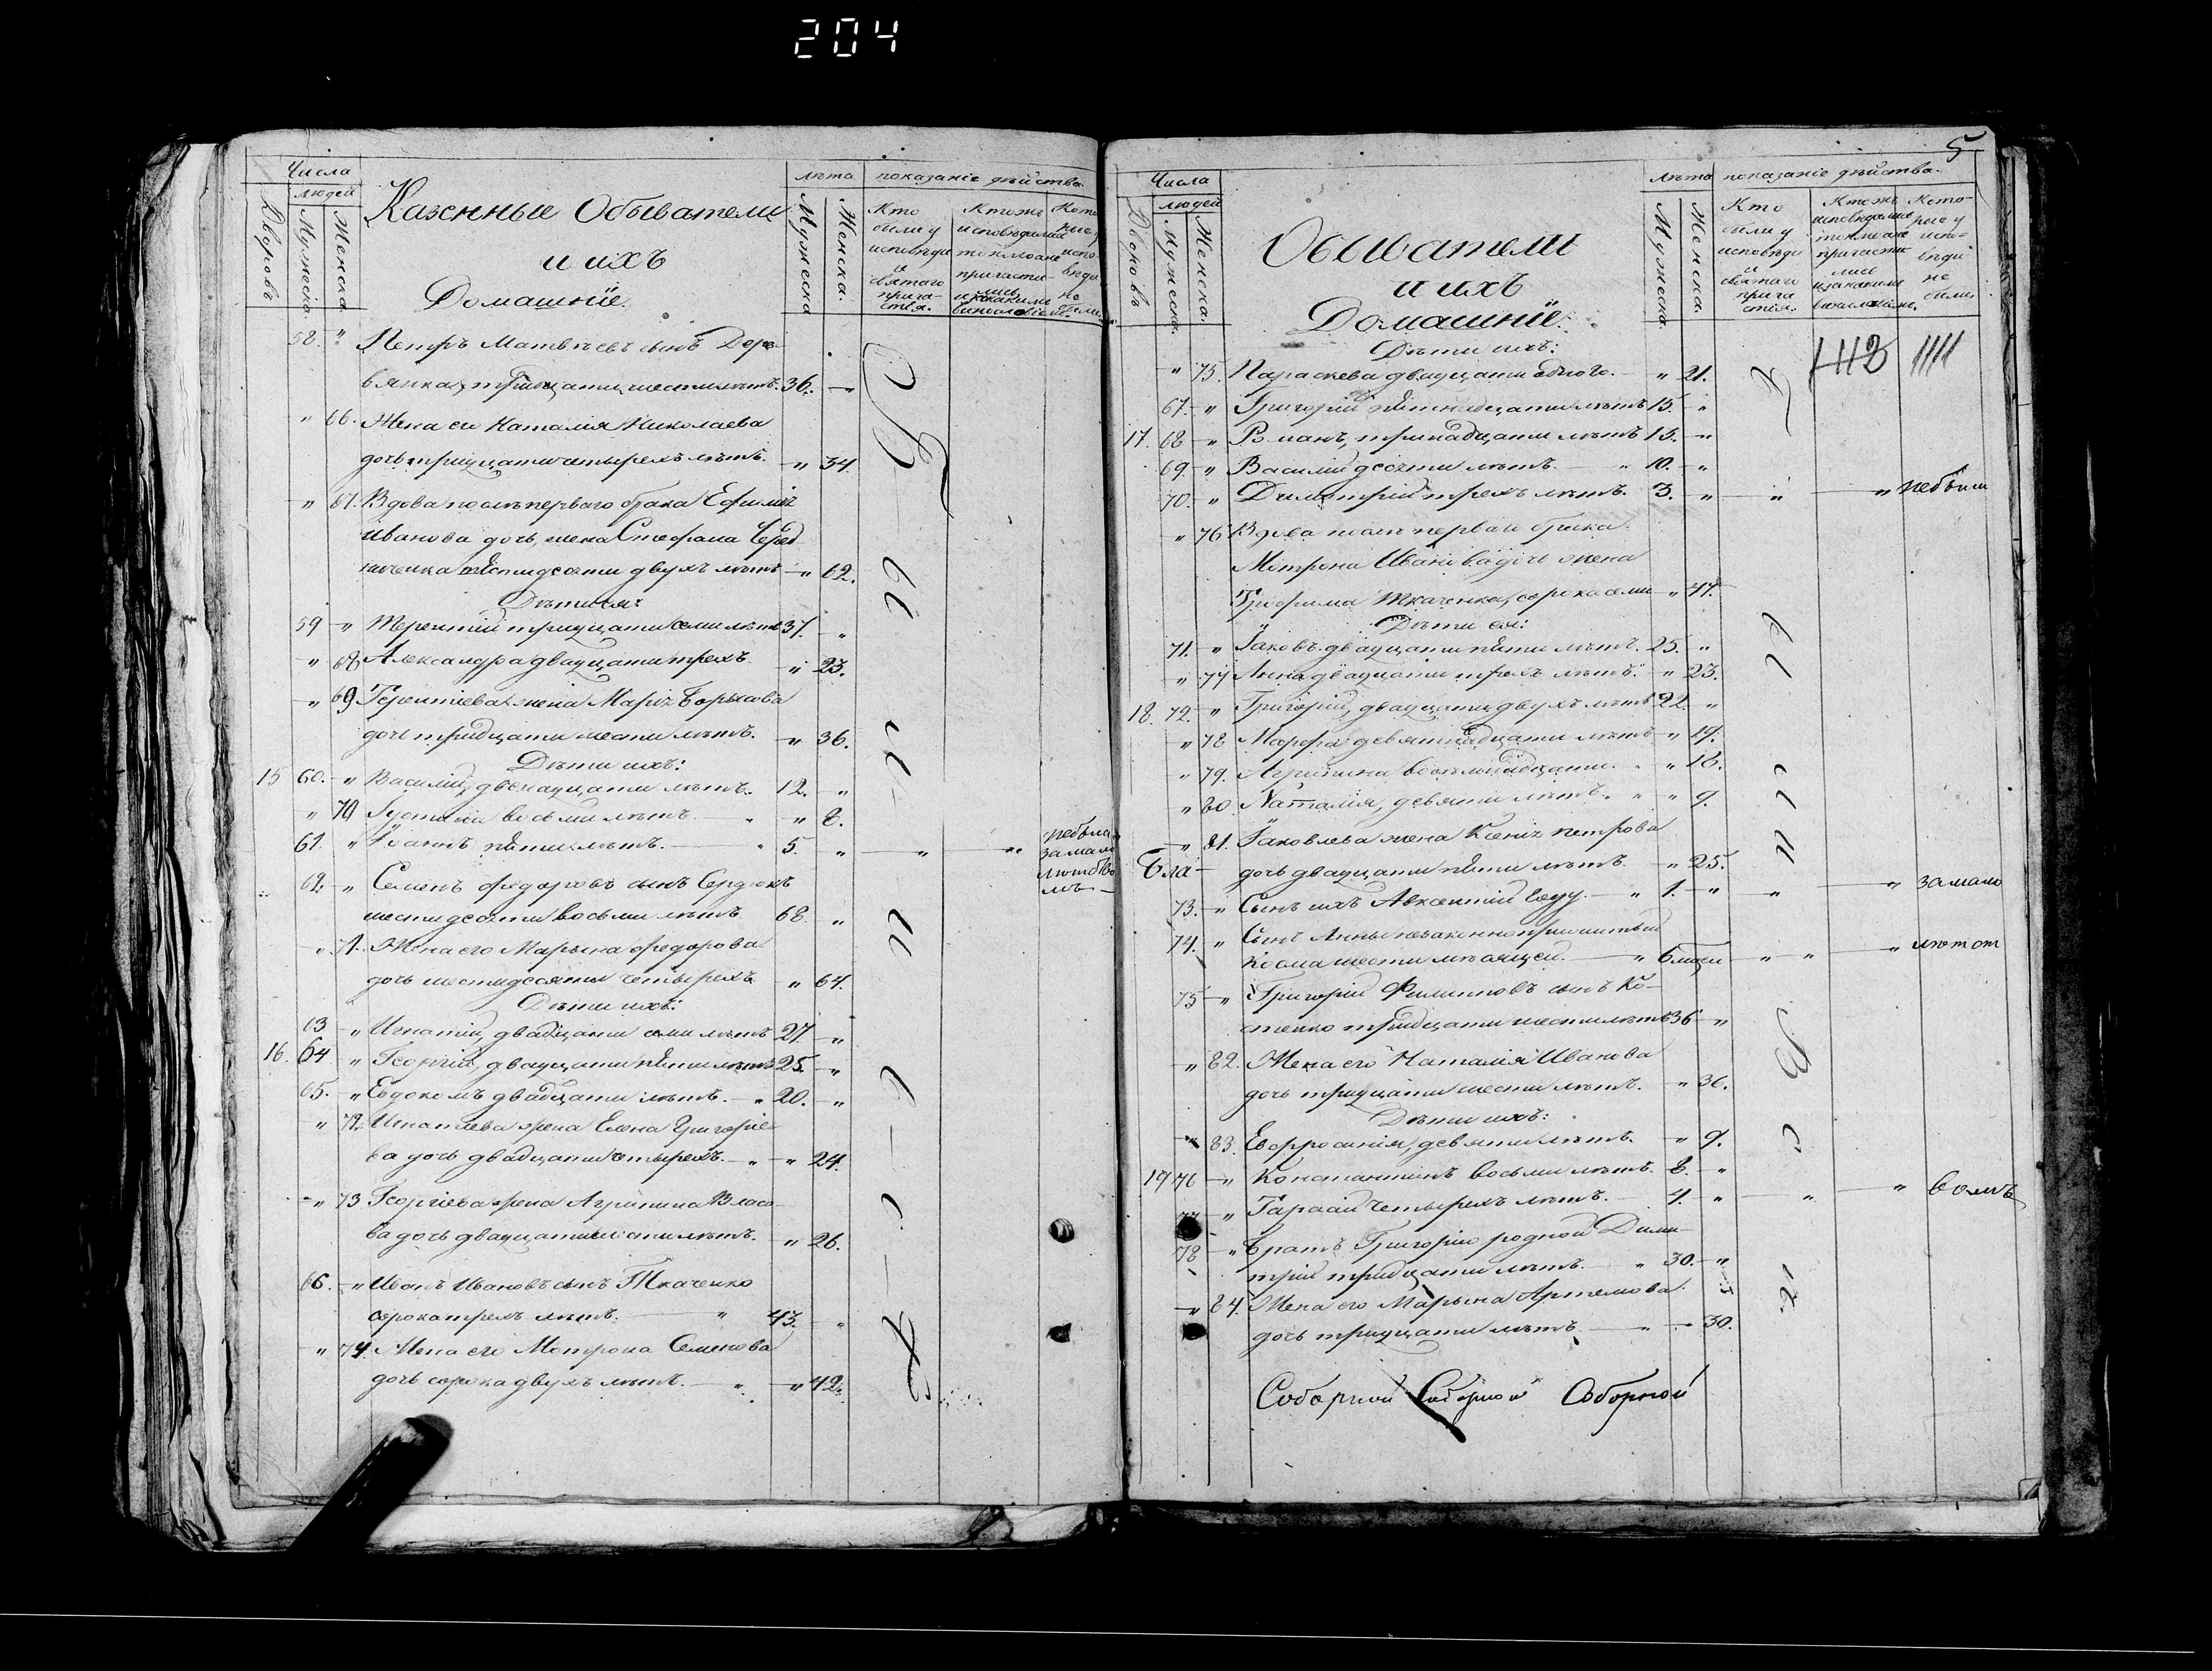 204
Числа
людей
Дворовъ
Мужеска
Женска
Казенные Обыватели
и ихъ
Домашніе.
лѣта
Мужеска
Женска.
показаніе дѣйства
Кто были у исповѣди и святаго причастія.
Ктожъ исповѣдались токмо а не причастились и за какимъ винословіемъ.
Которые у исповѣди не были.
58. " Петръ Матвѣевъ сынъ Дере
вянка, тридцати шести лѣтъ. 36. "
" 66. Жена его Наталія Николаева
дочь тридцати четырехъ лѣтъ. " 34.
" 67. Вдова послѣ перваго брака Ефимія
Иванова дочь, жена Стефана
шестидесяти двухъ лѣтъ " 62.
Дѣти ея:
59 " Терентій тридцати семи лѣтъ 37. "
" 68 Александра двадцати трехъ " 23.
" 69 Терентіева жена Марія Борисова
дочь тридцати шести лѣтъ. " 36.
Дѣти ихъ:
15 60. " Василій, двенадцати лѣтъ. 12. "
" 70 Іустинія восьми лѣтъ. " 8.
61. " Іоаннъ пяти лѣтъ. 5. " " " небылъ
замало
лѣтство
мъ
62. " Семенъ Федоровъ сынъ Сердюкъ
шестидесяти восьми лѣтъ 68. "
" 71. Жена его Марьяна Федорова
дочь шестидесяти четырехъ " 64.
Дѣти ихъ:
63 " Игнатій, двадцати семи лѣтъ 27. "
16. 64 " Георгій, двадцати пяти лѣтъ 25. "
65. " Евдокимъ двадцати лѣтъ. " 20. "
" 72. Игнатіева жена Елена Григорїе
ва дочь двадцати четырехъ. " " 24.
" 73 Георгіева жена Агрипина Власо
ва дочь двадцати шести лѣтъ. " 26.
66. " Иванъ Ивановъ сынъ Ткаченко
сорока трехъ лѣтъ. " 43. "
" 74. Жена его Мотрона Семенова
дочь сорока двухъ лѣтъ. " " 42.
5
Числа
людей
Дворовъ
Мужеска.
Женска.
Обыватели
и ихъ
Домашніе.
лѣта
Мужеска.
Женска.
показаніе дѣйства.
Кто были у исповѣди и святаго причастія.
Ктожъ исповѣдались токмо а не причастились и за какимъ винословіемъ.
Которые у исповѣди не были
Дѣти ихъ:
" 75. Параскева двадцати одного. " 21.
67. " Григорій пятнадцати лѣтъ 15. "
17. 68 " Романъ, тринадцати лѣтъ 13. "
69. " Василій десяти лѣтъ. " 10. "
70. " Димитрій трехъ лѣтъ. 3. " " " небыли
" 76 Вдова послѣ первой брака
Мотрона Иванова дочь жена
Трофима Ткаченка, сорока семи " 47.
Дѣти ея:
71. " Іаковъ двадцати пяти лѣтъ. 25. "
" 77 Анна двадцати трехъ лѣтъ. " 23.
18. 72. " Григорій, двадцати двухъ лѣтъ 22. "
" 78 Марфа девятнадцати лѣтъ " 19.
" 79. Агрипина восемнадцати. " " 18.
" 80 Наталія, девяти лѣтъ. " " 9.
" 81. Іаковлева жена Ксенія Петрова
Бла-
дочь двадцати пяти лѣтъ. " 25.
73. " Сынъ ихъ Авксентій году. " 1. " " " замало
74. " Сынъ Анны незаконно прижитый
Козма шести мѣсяцей. " 6 мцей " " " лѣтст
75 " Григорій Филиповъ сынъ Ко-
стенко тридцати шести лѣтъ 36 "
" 82. Жена его Наталія Иванова
дочь тридцати шести лѣтъ. " 36.
Дѣти ихъ:
" 83. Евфросинія, девяти лѣтъ. " 9.
19 76 " Константинъ восьми лѣтъ. 8. "
77 " Тарасій четырехъ лѣтъ. 4. " " " вомъ
78 " Братъ Григорію родной Дими-
трій тридцати лѣтъ. " 30. "
" 84. Жена его Марьяна Артемова
дочь тридцати лѣтъ. " " 30.
Соборной Соборной Соборной